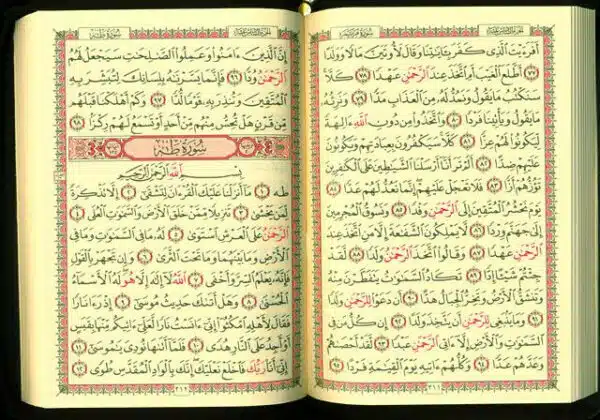 الجزء السادس عشر
سُورَةُ مَرْيَمَ
أَفَرَءَيْتَ الَّذِى كَفَرَ بِـَٔايَٰتِنَا وَقَالَ لَأُوتَيَنَّ مَالًا وَوَلَدًا
٧٧ أَطَّلَعَ الْغَيْبَ أَمِ اتَّخَذَ عِندَ الرَّحْمَٰنِ عَهْدًا ٧٨ كَلَّا
سَنَكْتُبُ مَا يَقُولُ وَنَمُدُّ لَهُۥ مِنَ الْعَذَابِ مَدًّا ٧٩ وَنَرِثُهُۥ
مَا يَقُولُ وَيَأْتِينَا فَرْدًا ٨٠ وَاتَّخَذُوا مِن دُونِ اللَّهِ ءَالِهَةً
لِّيَكُونُوا لَهُمْ عِزًّا ٨١ كَلَّا سَيَكْفُرُونَ بِعِبَادَتِهِمْ وَيَكُونُونَ
عَلَيْهِمْ ضِدًّا ٨٢ أَلَمْ تَرَ أَنَّا أَرْسَلْنَا الشَّيَٰطِينَ عَلَى الْكَٰفِرِينَ
تَؤُزُّهُمْ أَزًّا ٨٣ فَلَا تَعْجَلْ عَلَيْهِمْ إِنَّمَا نَعُدُّ لَهُمْ عَدًّا ٨٤
يَوْمَ نَحْشُرُ الْمُتَّقِينَ إِلَى الرَّحْمَٰنِ وَفْدًا ٨٥ وَنَسُوقُ الْمُجْرِمِينَ
إِلَىٰ جَهَنَّمَ وِرْدًا ٨٦ لَّا يَمْلِكُونَ الشَّفَٰعَةَ إِلَّا مَنِ اتَّخَذَ عِندَ
الرَّحْمَٰنِ عَهْدًا ٨٧ وَقَالُوا اتَّخَذَ الرَّحْمَٰنُ وَلَدًا ٨٨ لَّقَدْ
جِئْتُمْ شَيْـًٔا إِدًّا ٨٩ تَكَادُ السَّمَٰوَٰتُ يَتَفَطَّرْنَ مِنْهُ
وَتَنشَقُّ الْأَرْضُ وَتَخِرُّ الْجِبَالُ هَدًّا ٩٠ أَن دَعَوْا لِلرَّحْمَٰنِ وَلَدًا
٩١ وَمَا يَنۢبَغِى لِلرَّحْمَٰنِ أَن يَتَّخِذَ وَلَدًا ٩٢ إِن كُلُّ مَن فِى
السَّمَٰوَٰتِ وَالْأَرْضِ إِلَّا ءَاتِى الرَّحْمَٰنِ عَبْدًا ٩٣ لَّقَدْ أَحْصَىٰهُمْ
وَعَدَّهُمْ عَدًّا ٩٤ وَكُلُّهُمْ ءَاتِيهِ يَوْمَ الْقِيَٰمَةِ فَرْدًا ٩٥
٣١١
الجزء السادس عشر
سُورَةُ طه
إِنَّ الَّذِينَ ءَامَنُوا وَعَمِلُوا الصَّٰلِحَٰتِ سَيَجْعَلُ لَهُمُ
الرَّحْمَٰنُ وُدًّا ٩٦ فَإِنَّمَا يَسَّرْنَٰهُ بِلِسَانِكَ لِتُبَشِّرَ بِهِ
الْمُتَّقِينَ وَتُنذِرَ بِهِۦ قَوْمًا لُّدًّا ٩٧ وَكَمْ أَهْلَكْنَا قَبْلَهُم
مِّن قَرْنٍ هَلْ تُحِسُّ مِنْهُم مِّنْ أَحَدٍ أَوْ تَسْمَعُ لَهُمْ رِكْزًا ٩٨
سُورَةُ طه
بِسْمِ اللَّهِ الرَّحْمَٰنِ الرَّحِيمِ
طه ١ مَا أَنزَلْنَا عَلَيْكَ الْقُرْءَانَ لِتَشْقَىٰ ٢ إِلَّا تَذْكِرَةً
لِّمَن يَخْشَىٰ ٣ تَنزِيلًا مِّمَّنْ خَلَقَ الْأَرْضَ وَالسَّمَٰوَٰتِ الْعُلَى ٤
الرَّحْمَٰنُ عَلَى الْعَرْشِ اسْتَوَىٰ ٥ لَهُۥ مَا فِى السَّمَٰوَٰتِ وَمَا فِى
الْأَرْضِ وَمَا بَيْنَهُمَا وَمَا تَحْتَ الثَّرَىٰ ٦ وَإِن تَجْهَرْ بِالْقَوْلِ
فَإِنَّهُۥ يَعْلَمُ السِّرَّ وَأَخْفَى ٧ اللَّهُ لَا إِلَٰهَ إِلَّا هُوَ لَهُ الْأَسْمَاءُ
الْحُسْنَىٰ ٨ وَهَلْ أَتَىٰكَ حَدِيثُ مُوسَىٰ ٩ إِذْ رَءَا نَارًا
فَقَالَ لِأَهْلِهِ امْكُثُوا إِنِّى ءَانَسْتُ نَارًا لَّعَلِّى ءَاتِيكُم مِّنْهَا بِقَبَسٍ
أَوْ أَجِدُ عَلَى النَّارِ هُدًى ١٠ فَلَمَّا أَتَىٰهَا نُودِىَ يَٰمُوسَىٰ ١١
إِنِّى أَنَا رَبُّكَ فَاخْلَعْ نَعْلَيْكَ إِنَّكَ بِالْوَادِ الْمُقَدَّسِ طُوًى ١٢
٣١٢